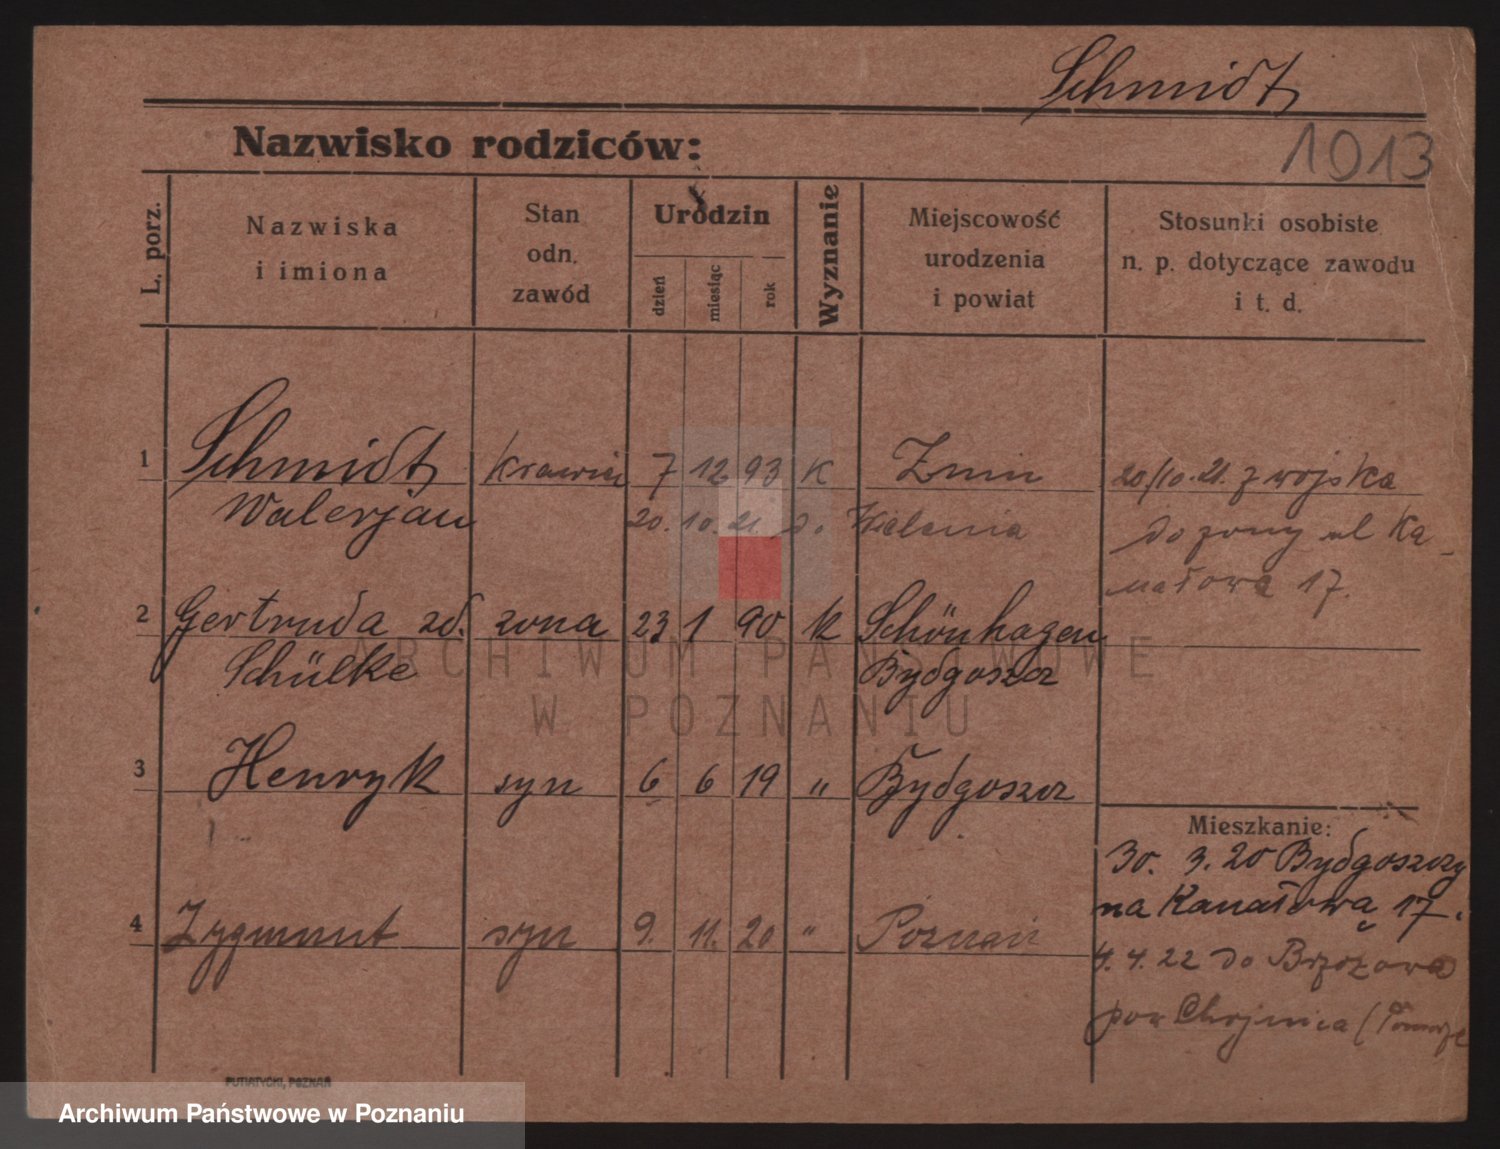 Schmidt
Nazwisko rodziców:
1913
L. porz.
Nazwiska
i imiona
Stan
odn.
zawód
Urodzin
dzień
miesiąc
rok
Wyznanie
Miejscowość
urodzenia
i powiat
Stosunki osobiste
n. p. dotyczące zawodu
i t. d.
1 Schmidt krawiec 7 12 93 K Znin 20/10.21. z wojska
Walerjan 20. 10. 21. do żony ul Ka-
nałowa 17.
2 Gertruda zd. zona 23 1 90 K Schönhagen
Schülke Bydgoszcz
3 Henryk syn 6 6 19 " Bydgoszcz
Mieszkanie:
30. 3. 20 Bydgoszczy
na Kanałową 17.
4 Zygmunt syn 9. 11. 20 " Poznań
4. 4. 22 do Brzozowa
pow Chojnica (Pomorze
PUTIATYCKI, POZNAŃ
ARCHIWUM PAŃSTWOWE
W POZNANIU
Archiwum Państwowe w Poznaniu